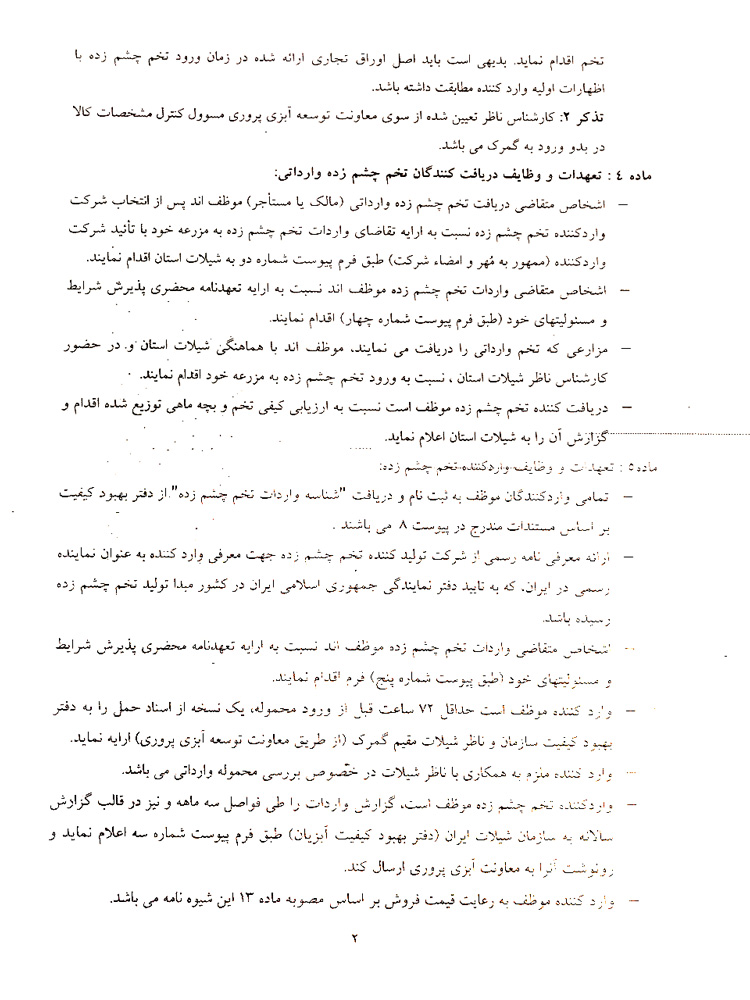 تخم اقدام نماید. بدیهی است باید اصل اوراق تجاری ارائه شده در زمان ورود تخم چشم زده با
اظهارات اولیه وارد کننده مطابقت داشته باشد.
تذکر ۲: کارشناس ناظر تعیین شده از سوی معاونت توسعه آبزی پروری مسوول کنترل مشخصات کالا
در بدو ورود به گمرک می باشد.
ماده ٤ : تعهدات و وظایف دریافت کنندگان تخم چشم زده وارداتی:
– اشخاص متقاضی دریافت تخم چشم زده وارداتی (مالک یا مستأجر) موظف اند پس از انتخاب شرکت
واردکننده تخم چشم زده نسبت به ارایه تقاضای واردات تخم چشم زده به مزرعه خود با تأئید شرکت
واردکننده (ممهور به مُهر و امضاء شرکت) طبق فرم پیوست شماره دو به شیلات استان اقدام نمایند.
– اشخاص متقاضی واردات تخم چشم زده موظف اند نسبت به ارایه تعهدنامه محضری پذیرش شرایط
و مسئولیتهای خود (طبق فرم پیوست شماره چهار) اقدام نمایند.
– مزارعی که تخم وارداتی را دریافت می نمایند، موظف اند با هماهنگی شیلات استان و در حضور
کارشناس ناظر شیلات استان ، نسبت به ورود تخم چشم زده به مزرعه خود اقدام نمایند.
– دریافت کننده تخم چشم زده موظف است نسبت به ارزیابی کیفی تخم و بچه ماهی توزیع شده اقدام و
گزارش آن را به شیلات استان اعلام نماید.
ماده٥ : تعهدات و وظایف واردکننده تخم چشم زده:
– تمامی واردکنندگان موظف به ثبت نام و دریافت "شناسه واردات تخم چشم زده" از دفتر بهبود کیفیت
بر اساس مستندات مندرج در پیوست ۸ می باشند .
– ارائه معرفی نامه رسمی از شرکت تولید کننده تخم چشم زده جهت معرفی وارد کننده به عنوان نماینده
رسمی در ایران، که به تایید دفتر نمایندگی جمهوری اسلامی ایران در کشور مبدا تولید تخم چشم زده
رسیده باشد.
– اشخاص متقاضی واردات تخم چشم زده موظف اند نسبت به ارایه تعهدنامه محضری پذیرش شرایط
و مسئولیتهای خود (طبق پیوست شماره پنج) فرم اقدام نمایند.
– وارد کننده موظف است حداقل ۷۲ ساعت قبل از ورود محموله، یک نسخه از اسناد حمل را به دفتر
بهبود کیفیت سازمان و ناظر شیلات مقیم گمرک (از طریق معاونت توسعه آبزی پروری) ارایه نماید.
– وارد کننده ملزم به همکاری با ناظر شیلات در خصوص بررسی محموله وارداتی می باشد.
– واردکننده تخم چشم زده موظف است، گزارش واردات را طی فواصل سه ماهه و نیز در قالب گزارش
سالانه به سازمان شیلات ایران (دفتر بهبود کیفیت آبزیان) طبق فرم پیوست شماره سه اعلام نماید و
رونوشت آنرا به معاونت آبزی پروری ارسال کند.
– وارد کننده موظف به رعایت قیمت فروش بر اساس مصوبه ماده ۱۳ این شیوه نامه می باشد.
۲